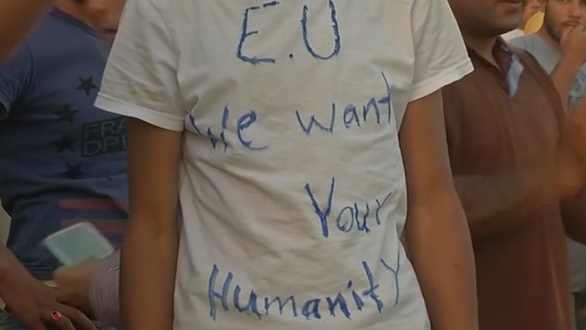 E.U
We want
Your
Humanity
FRA
DPL